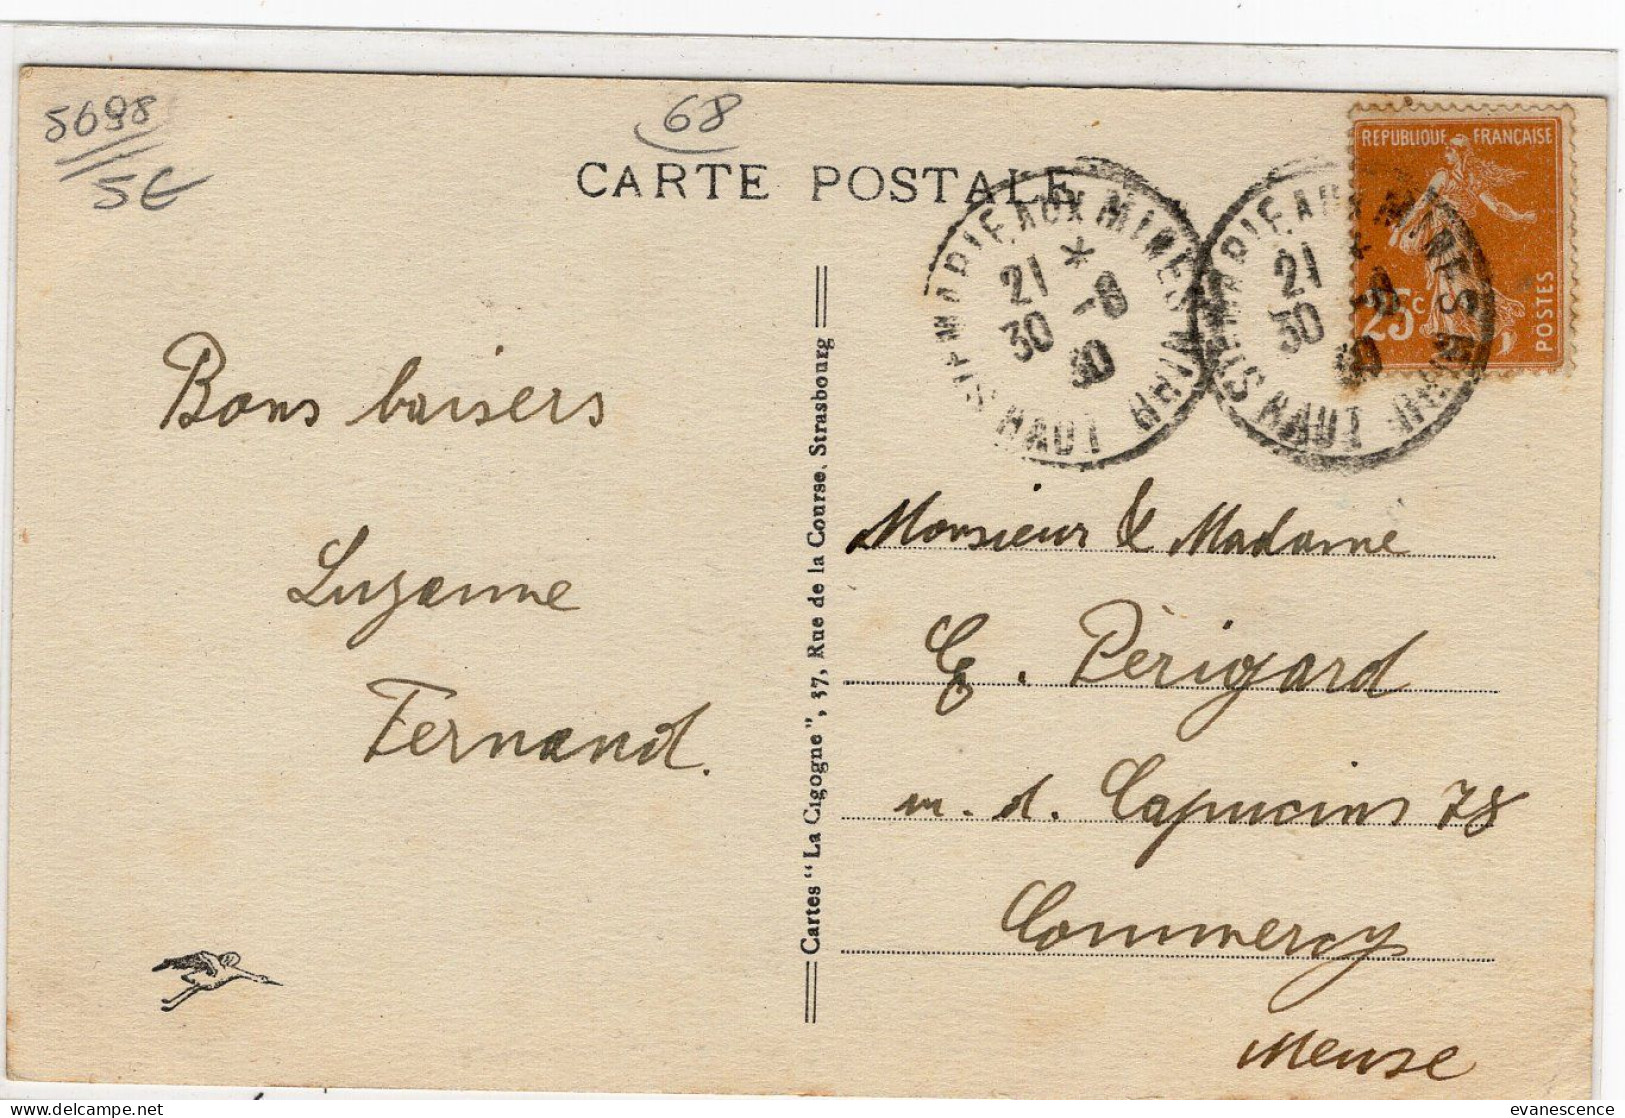 5698
5€
68
CARTE POSTALE
REPUBLIQUE FRANÇAISE
25c
POSTES
STE MARIE AUX MINES HAUT RHIN
21 * -8
30 30
STE MARIE AUX MINES HAUT RHIN
21 * -8
30 30
Bons baisers
Suzanne
Fernand.
Cartes "La Cigogne", 37, Rue de la Course, Strasbourg
Monsieur & Madame
Périgard
Capucins 78
Commercy
Meuse
evanescence